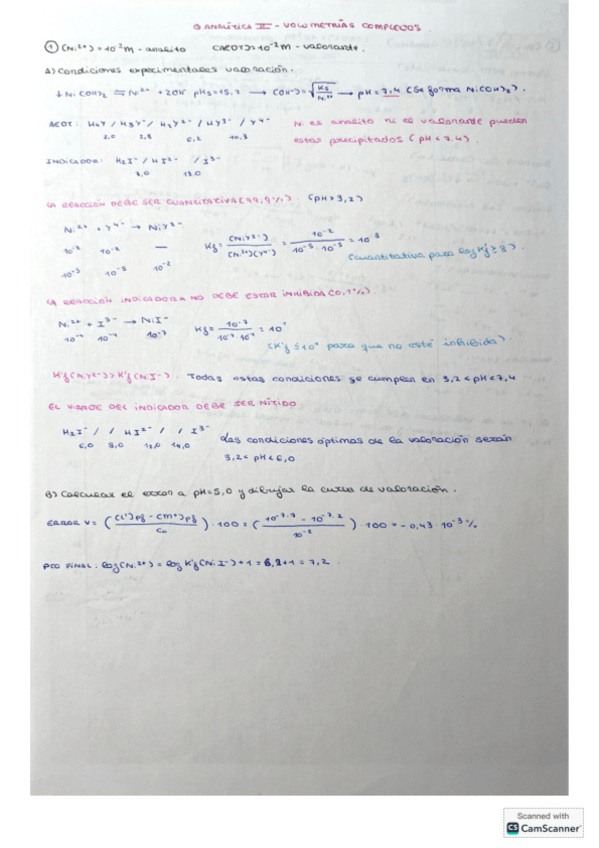 Q ANALÍTICA II - VOLUMETRÍAS COMPLEJOS.
① (Ni²⁺) = 10⁻²M - analito (AEDT) = 10⁻²M - valorante.
A) Condiciones experimentales valoración.
↓ Ni(OH)₂ ⇌ Ni²⁺ + 2OH⁻ pKs = 15,2 → (OH⁻) = √(Ks/Ni²⁺) → pH = 7,4 (Se forma Ni(OH)₂).
AEDT: H₄Y / H₃Y⁻ / H₂Y²⁻ / HY³⁻ / Y⁴⁻
2,0 2,8 6,2 10,3
Ni es analito ni el valorante pueden
estar precipitados (pH < 7,4).
INDICADOR: H₂I⁻ / HI²⁻ / I³⁻
7,0 13,0
LA REACCIÓN DEBE SER CUANTITATIVA (99,9%). (pH > 3,2)
Ni²⁺ + Y⁴⁻ → NiY²⁻
10⁻² 10⁻² —
10⁻⁵ 10⁻⁵ 10⁻²
Kf = (NiY²⁻) / (Ni²⁺)(Y⁴⁻) = 10⁻² / 10⁻⁵ · 10⁻⁵ = 10⁻⁸
(cuantitativa para log Kf ≥ 8).
LA REACCIÓN INDICADORA NO DEBE ESTAR INHIBIDA (0,1%).
Ni²⁺ + I³⁻ → NiI⁻
10⁻⁴ 10⁻⁴ 10⁻⁷
Kf = 10⁻⁷ / 10⁻⁴ · 10⁻⁴ = 10¹
(K'f ≤ 10¹ para que no esté inhibida)
K'f (NiY²⁻) > K'f (NiI⁻). Todas estas condiciones se cumplen en 3,2 < pH < 7,4
EL VIRAJE DEL INDICADOR DEBE SER NÍTIDO
H₂I⁻ / / HI²⁻ / / I³⁻
6,0 8,0 12,0 14,0
Las condiciones óptimas de la valoración serán
3,2 < pH < 6,0
B) Calcular el error a pH = 5,0 y dibujar la curva de valoración.
ERROR V = ((L')pf - (M')pf / C₀) · 100 = (10⁻⁷·⁷ - 10⁻⁷·² / 10⁻²) · 100 = - 0,43 · 10⁻³ %
PTO FINAL: log(Ni²⁺) = log K'f (NiI⁻) + 1 = 6,2 + 1 = 7,2.
Scanned with
CS CamScanner